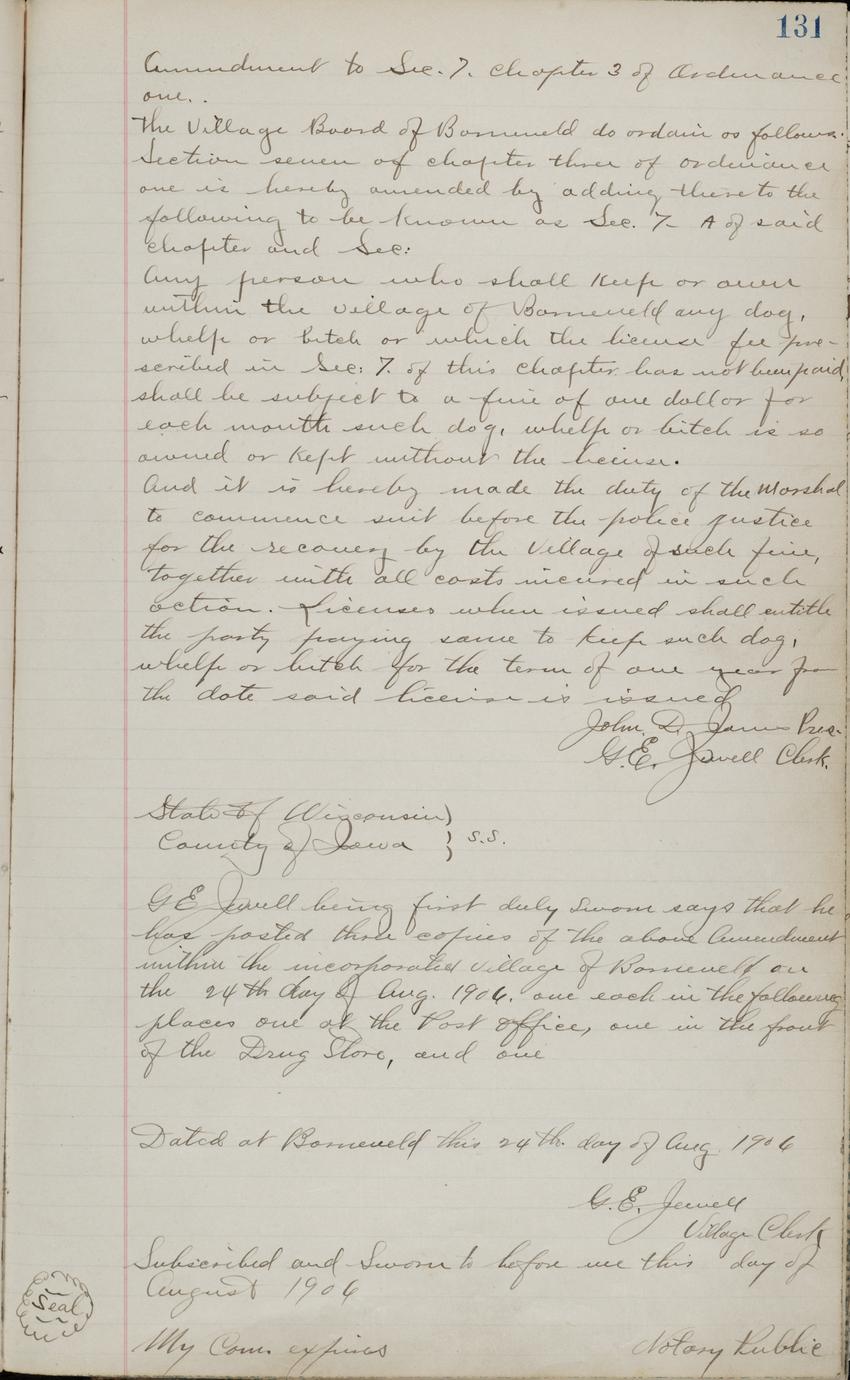 131
Amendment to Sec. 7. chapter 3 of Ordinance
one.
The Village Board of Barneveld do ordain as follows.
Section seven of chapter three of ordinance
one is hereby amended by adding thereto the
following to be known as Sec. 7- A of said
chapter and Sec:
Any person who shall keep or own
within the village of Barneveld any dog,
whelp or bitch or which the license fee pre-
scribed in Sec: 7. of this chapter has not been paid,
shall be subject to a fine of one dollar for
each month such dog, whelp or bitch is so
owned or kept without the license.
And it is hereby made the duty of the Marshal
to commence suit before the police justice
for the recovery by the Village of such fine,
together with all costs incured in such
action. Licenses when issued shall entitle
the party paying same to keep such dog,
whelp or bitch for the term of one year from
the date said license is issued
John. D. James Pres.
G.E. Jewell Clerk.
State of Wisconsin )
County of Iowa } s.s.
G E Jewell being first duly sworn says that he
has posted three copies of the above Amendment
within the incorporated village of Barneveld on
the 24th day of Aug. 1906. one each in the following
places one at the Post office, one in the front
of the Drug Store, and one
Dated at Barneveld this 24th. day of Aug. 1906
G. E. Jewell
Village Clerk
Subscribed and Sworn to before me this day of
August 1906
Seal
My Com. expires Notary Public